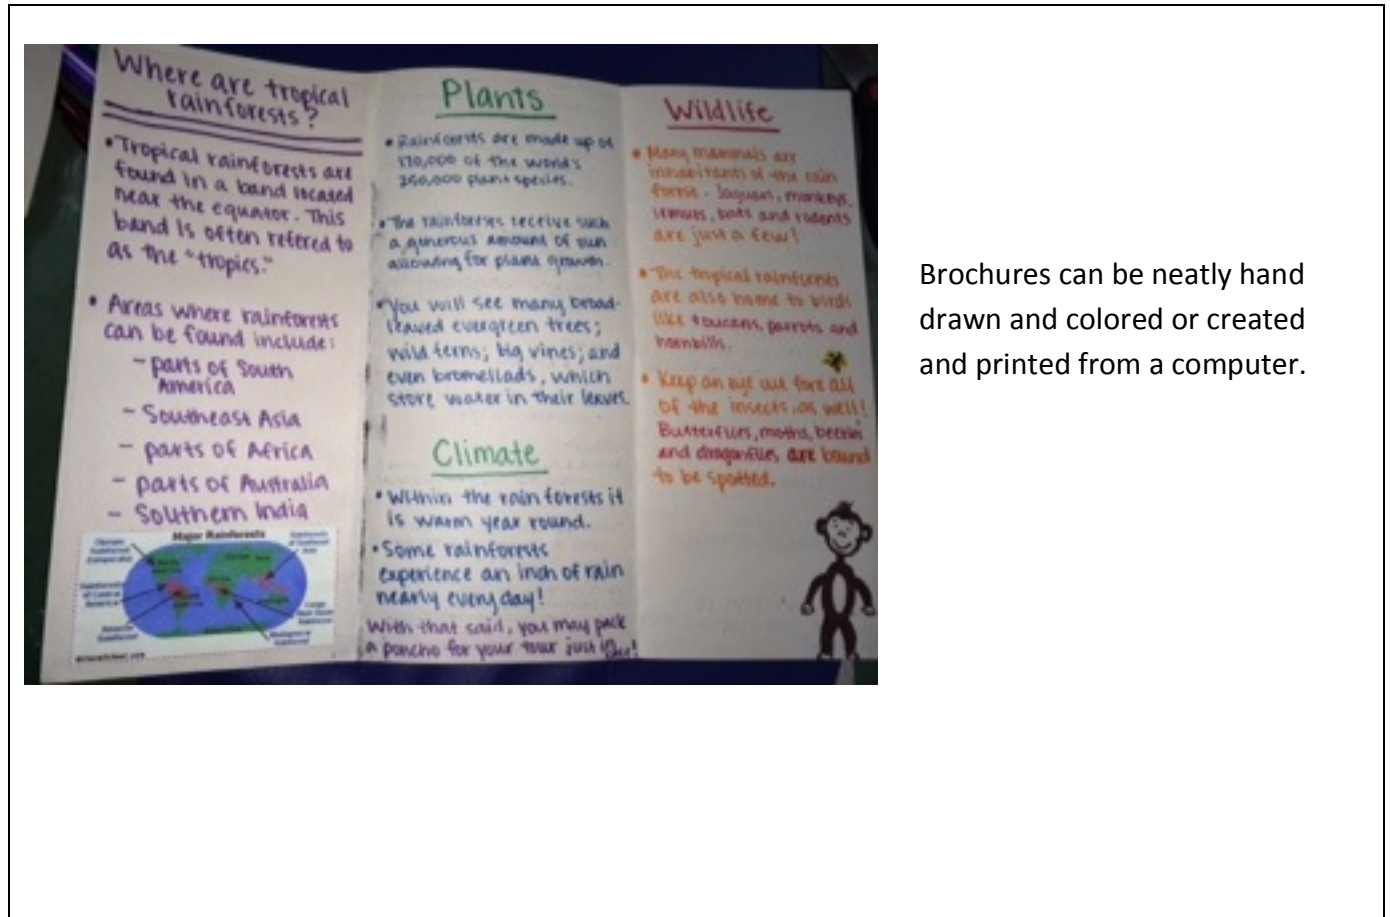 Where are tropical
rainforests?
• Tropical rainforests are
found in a band located
near the equator. This
band is often refered to
as the "tropics."
• Areas where rainforests
can be found include:
- parts of South
America
- Southeast Asia
- parts of Africa
- parts of Australia
- Southern India
Major Rainforests
Plants
• Rainforests are made up of
170,000 of the world's
250,000 plant species.
• The rainforests receive such
a generous amount of sun
allowing for plant growth.
• You will see many broad-
leaved evergreen trees;
wild ferns; big vines; and
even bromeliads, which
store water in their leaves.
Climate
• Within the rain forests it
is warm year round.
• Some rainforests
experience an inch of rain
nearly every day!
With that said, you may pack
a poncho for your tour just in
case!
Wildlife
• Many mammals are
inhabitants of the rain
forest. Jaguars, monkeys,
lemurs, bats and rodents
are just a few!
• The tropical rainforests
are also home to birds
like toucans, parrots and
hornbills.
• Keep an eye out fore all
of the insects, as well!
Butterflies, moths, beetles
and dragonflies are bound
to be spotted.
Brochures can be neatly hand
drawn and colored or created
and printed from a computer.